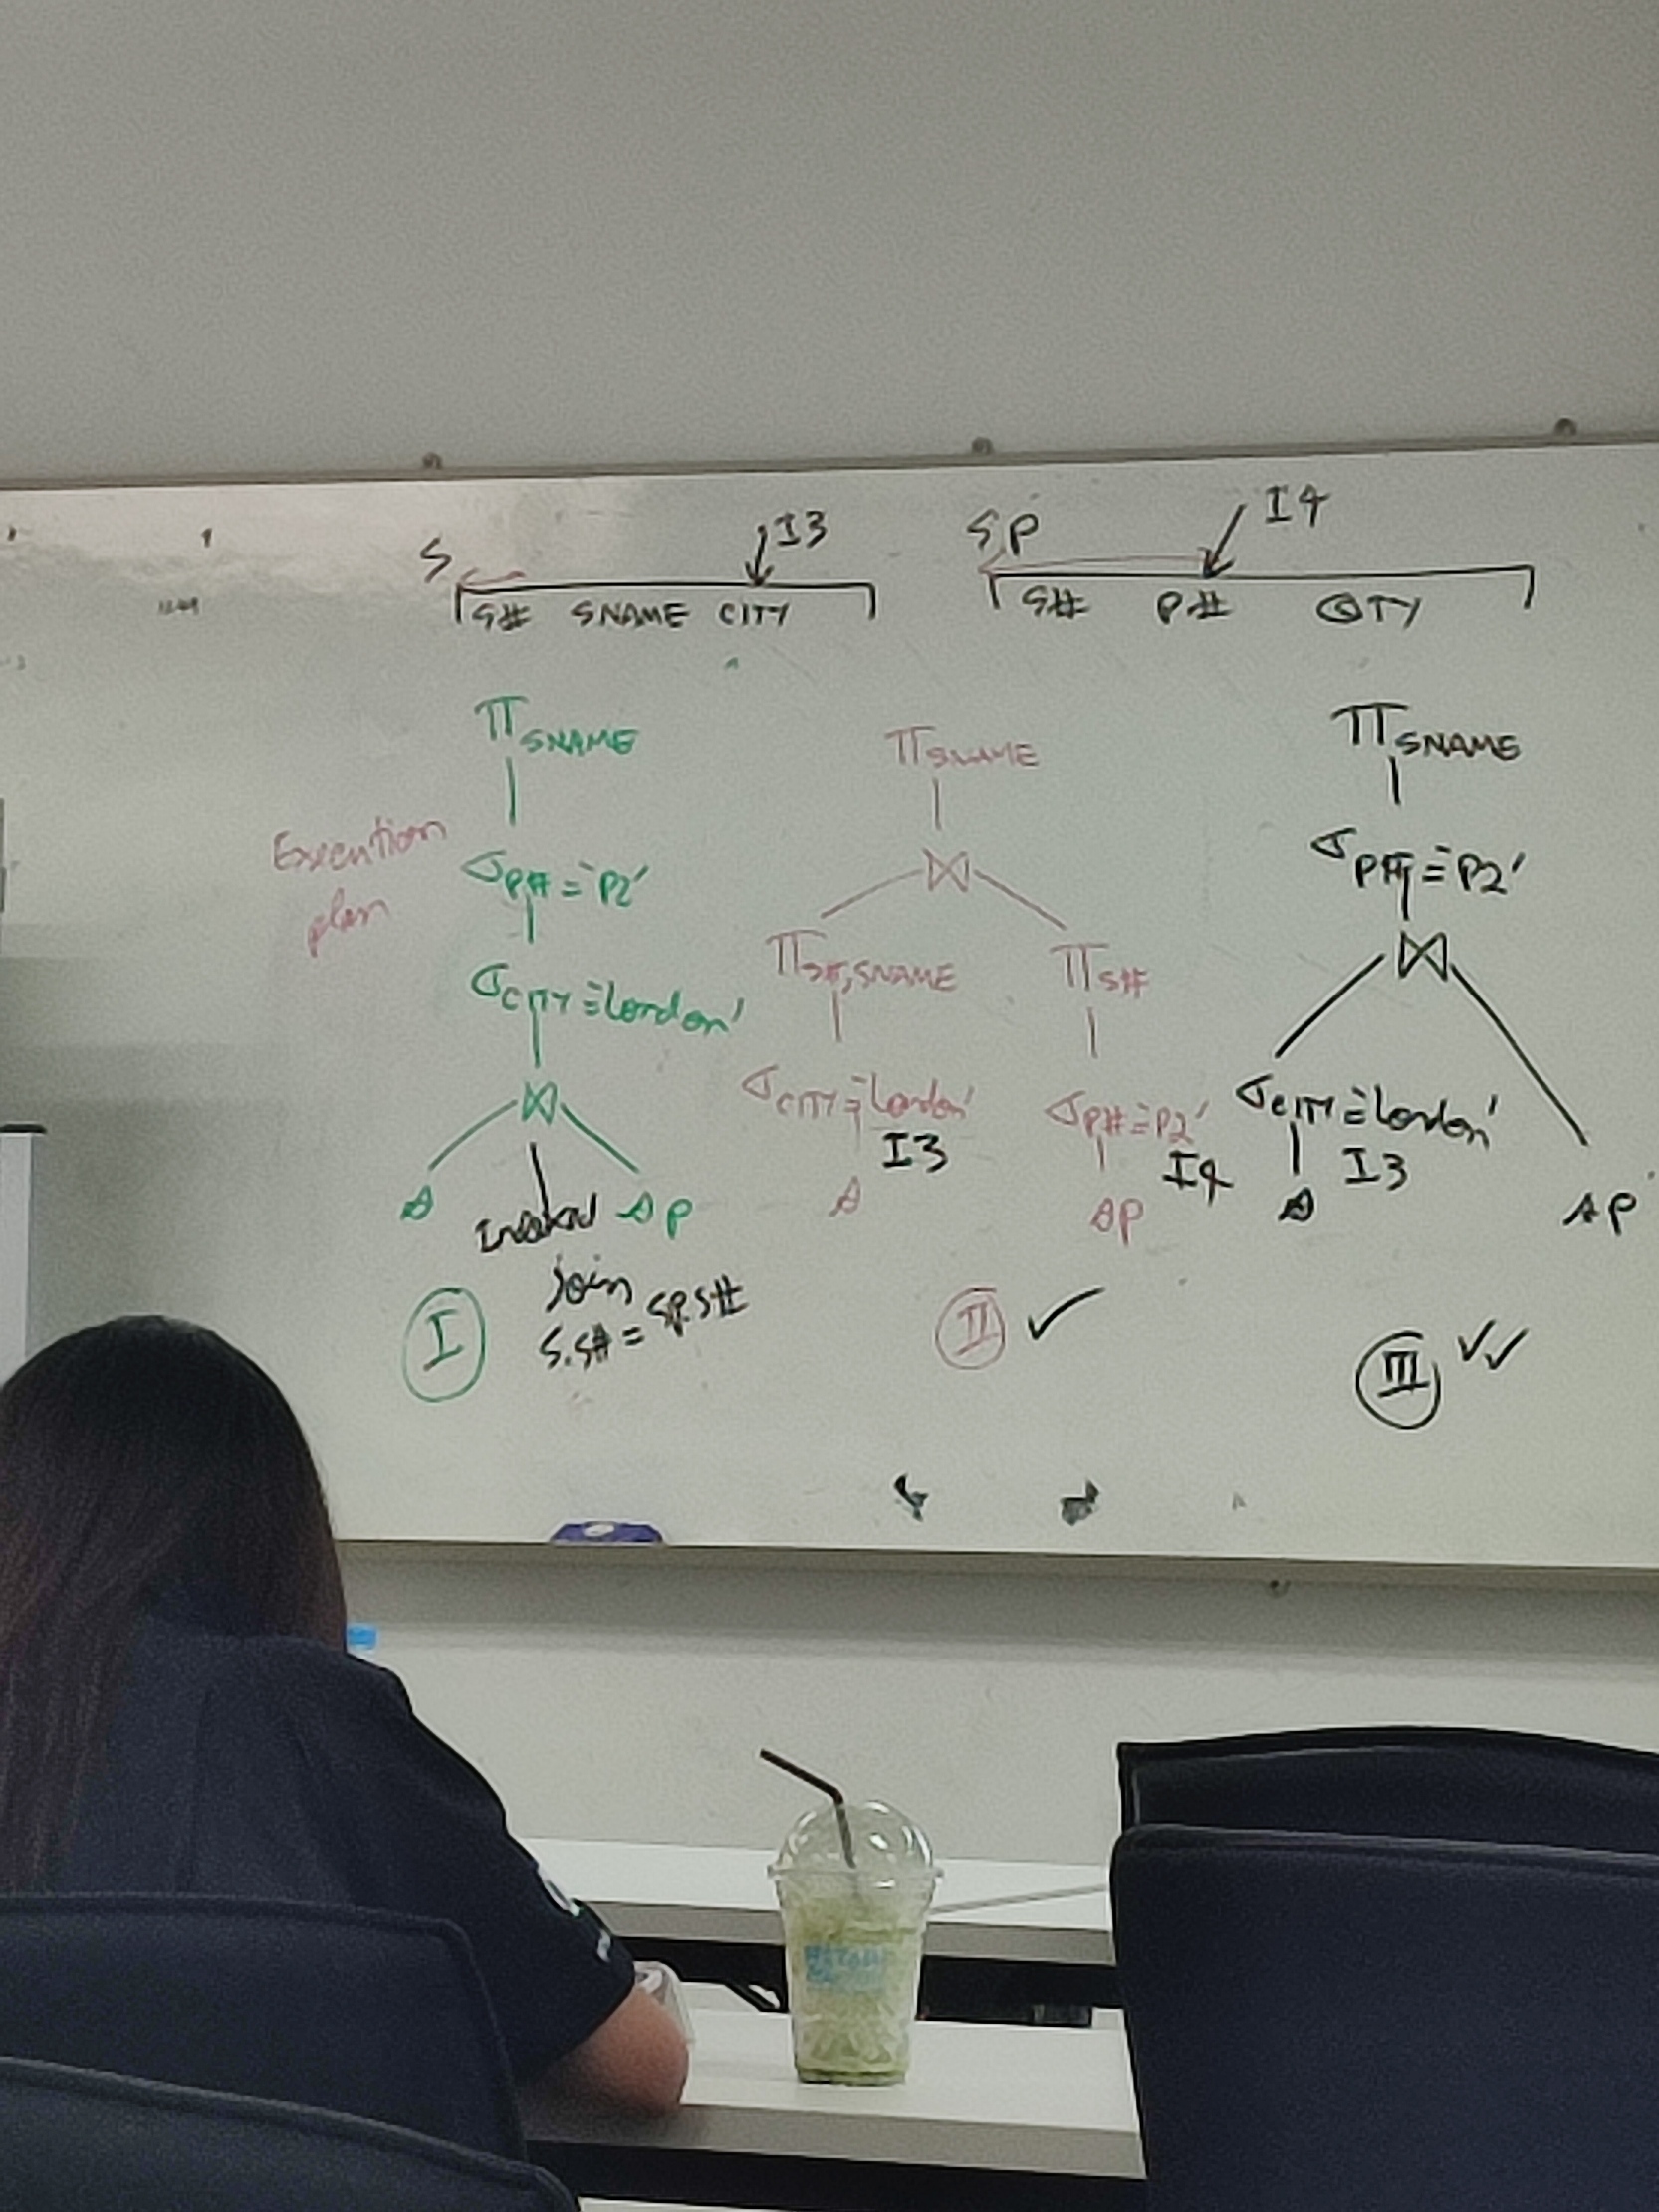 S
I3
S# SNAME CITY
SP
I4
S# P# QTY
Execution
plan
π SNAME
σ P# = 'P2'
σ CITY = 'London'
⋈
S SP
join
S.S# = SP.S#
I
π SNAME
⋈
π S#, SNAME π S#
σ CITY = 'London' σ P# = 'P2'
I3 I4
S SP
II ✓
π SNAME
σ P# = 'P2'
⋈
σ CITY = 'London'
I3
S SP
III ✓✓